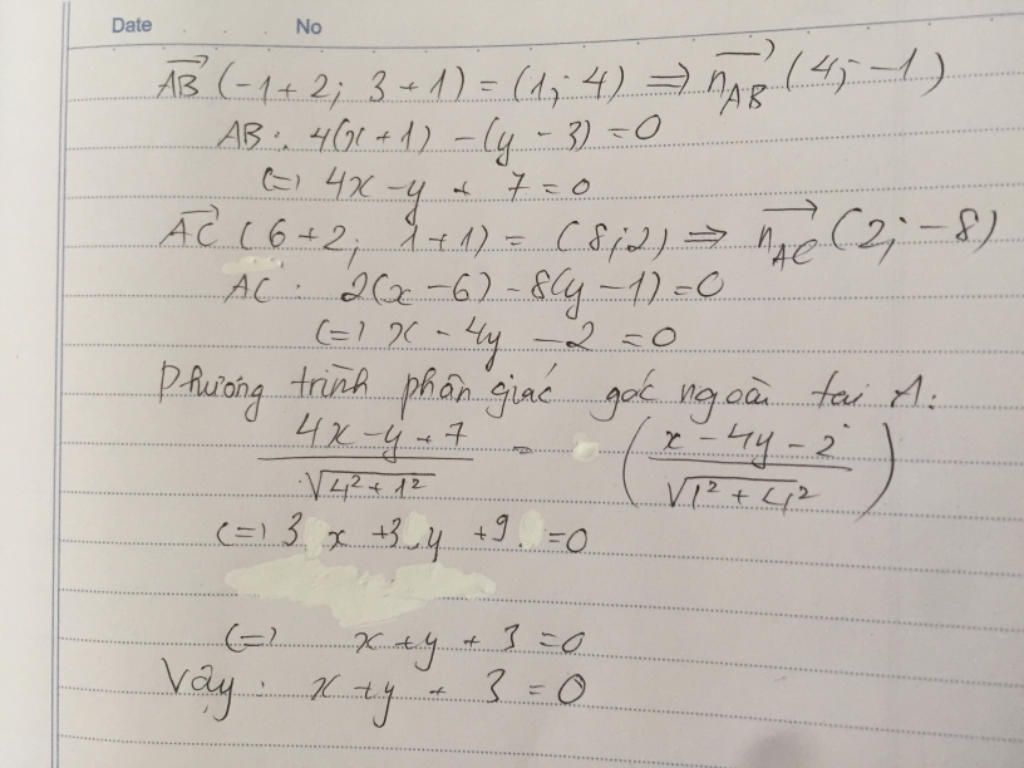 Date No
AB→ (-1+2; 3+1) = (1; 4) ⇒ n→AB (4; -1)
AB: 4(x+1) - (y-3) = 0
(=) 4x - y + 7 = 0
AC→ (6+2; 1+1) = (8; 2) ⇒ n→AC (2; -8)
AC: 2(x-6) - 8(y-1) = 0
(=) x - 4y - 2 = 0
Phương trình phân giác góc ngoài tại A:
(4x - y + 7)/√(4² + 1²) = ((x - 4y - 2)/√(1² + 4²))
(=) 3x + 3y + 9 = 0
(=) x + y + 3 = 0
Vậy: x + y + 3 = 0